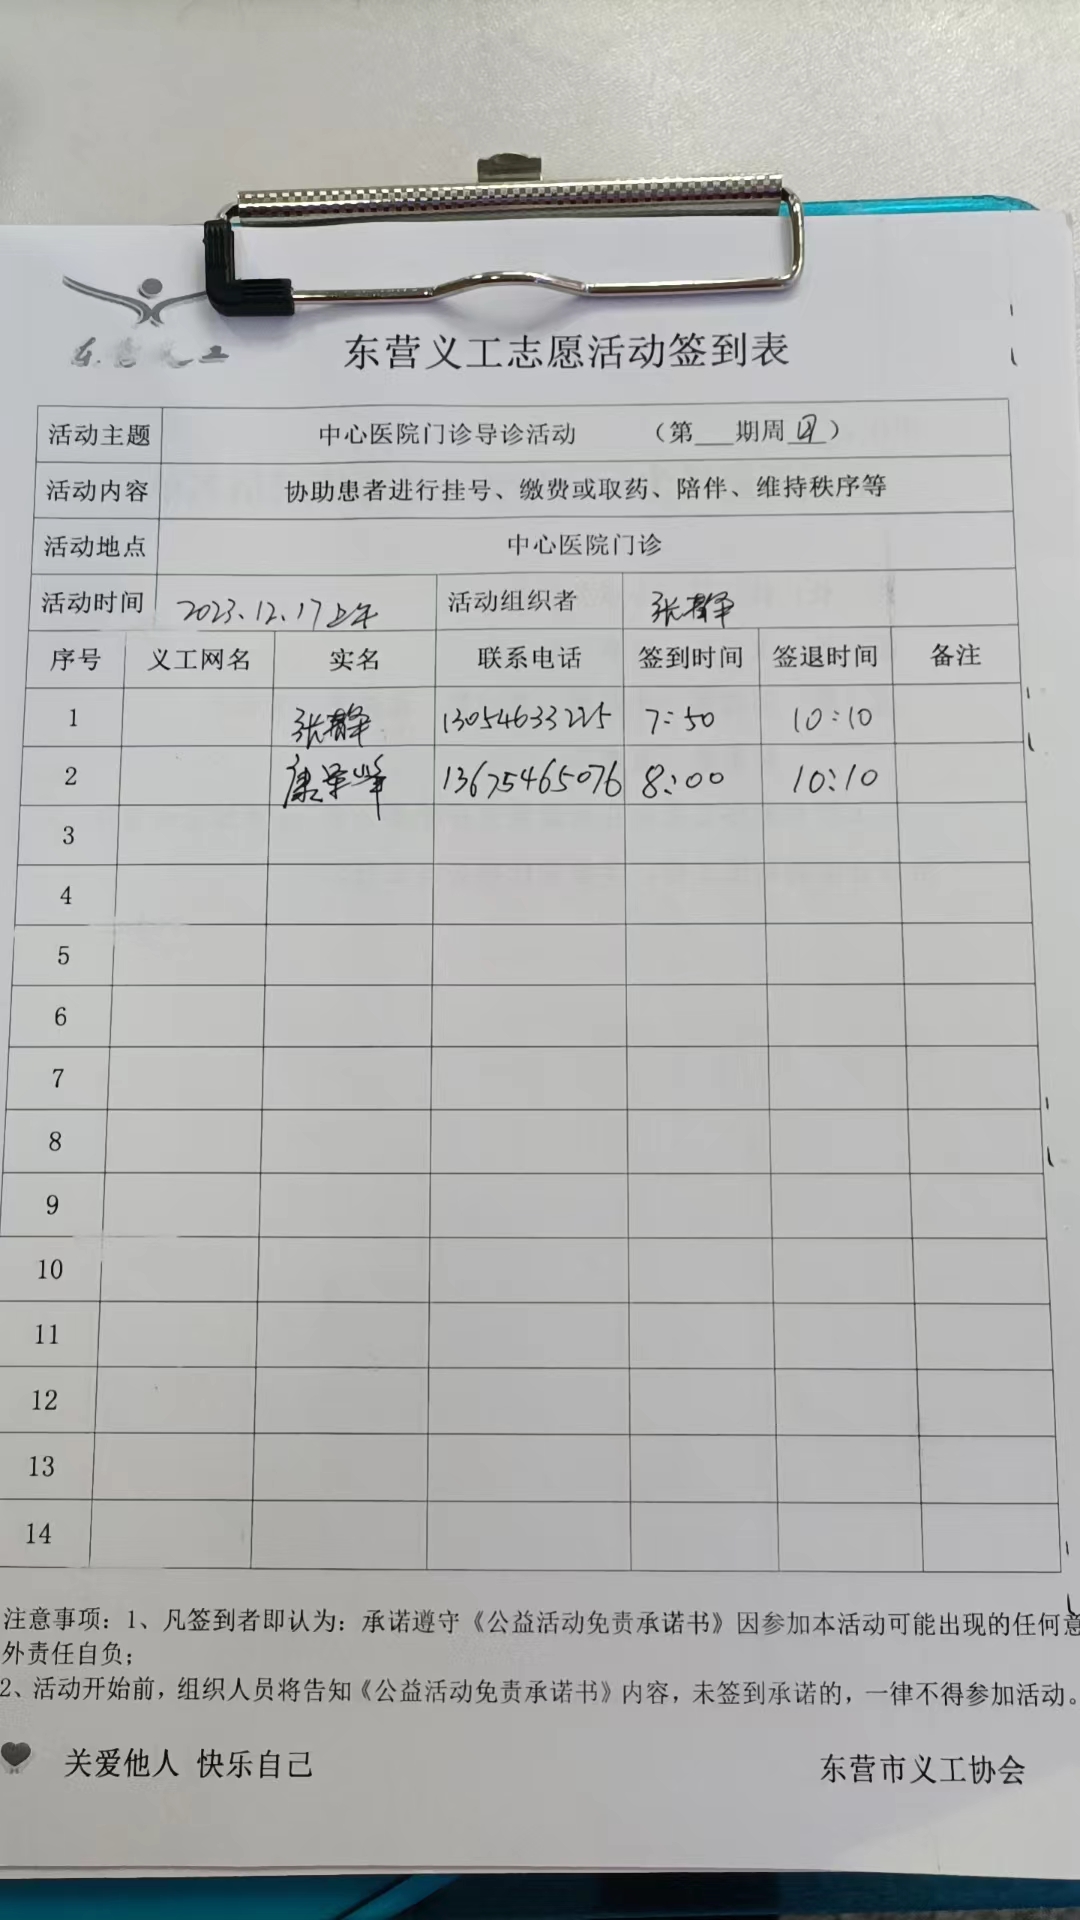 东营义工
东营义工志愿活动签到表
活动主题 中心医院门诊导诊活动 （第___期周四）
活动内容 协助患者进行挂号、缴费或取药、陪伴、维持秩序等
活动地点 中心医院门诊
活动时间 2023.12.17上午 活动组织者 张静
序号 义工网名 实名 联系电话 签到时间 签退时间 备注
1 张静 13054633225 7:50 10:10
2 康荣峰 13675465076 8:00 10:10
3
4
5
6
7
8
9
10
11
12
13
14
注意事项：1、凡签到者即认为：承诺遵守《公益活动免责承诺书》因参加本活动可能出现的任何意
外责任自负；
2、活动开始前，组织人员将告知《公益活动免责承诺书》内容，未签到承诺的，一律不得参加活动。
关爱他人 快乐自己
东营市义工协会